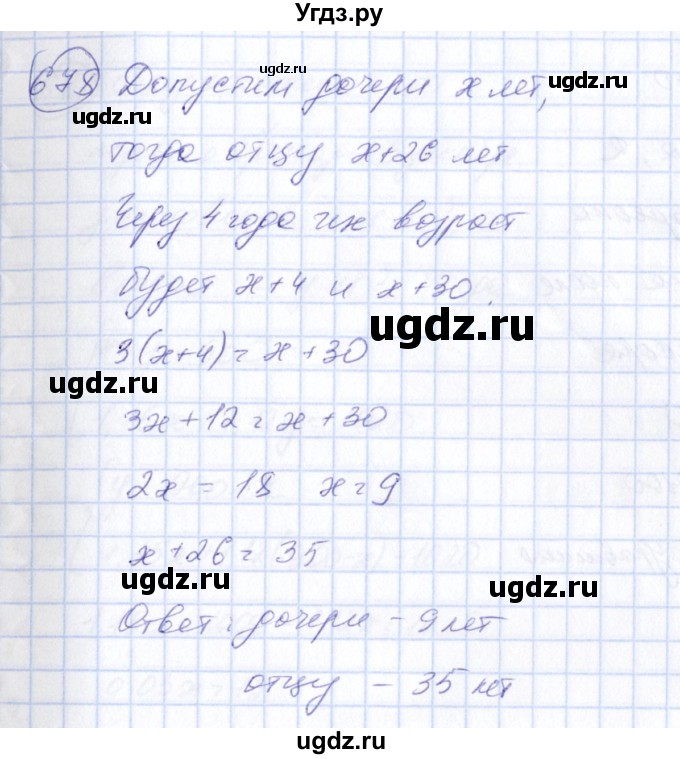 Угдз.ру
ugdz.ru
678 Допустим дочери x лет,
ugdz.ru
тогда отцу x+26 лет
ugdz.ru
Через 4 года их возраст
будет x+4 и x+30.
ugdz.ru
3(x+4)=x+30
ugdz.ru
3x+12=x+30
2x = 18 x=9
x+26=35
ugdz.ru
ugdz.ru
Ответ: дочери - 9 лет
отцу - 35 лет
ugdz.ru
ugdz.ru